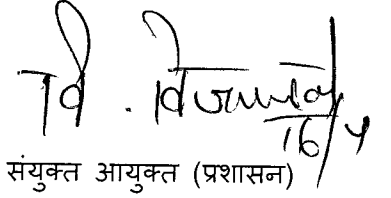 वि. विजयलक्ष्मी
16/4
संयुक्त आयुक्त (प्रशासन)